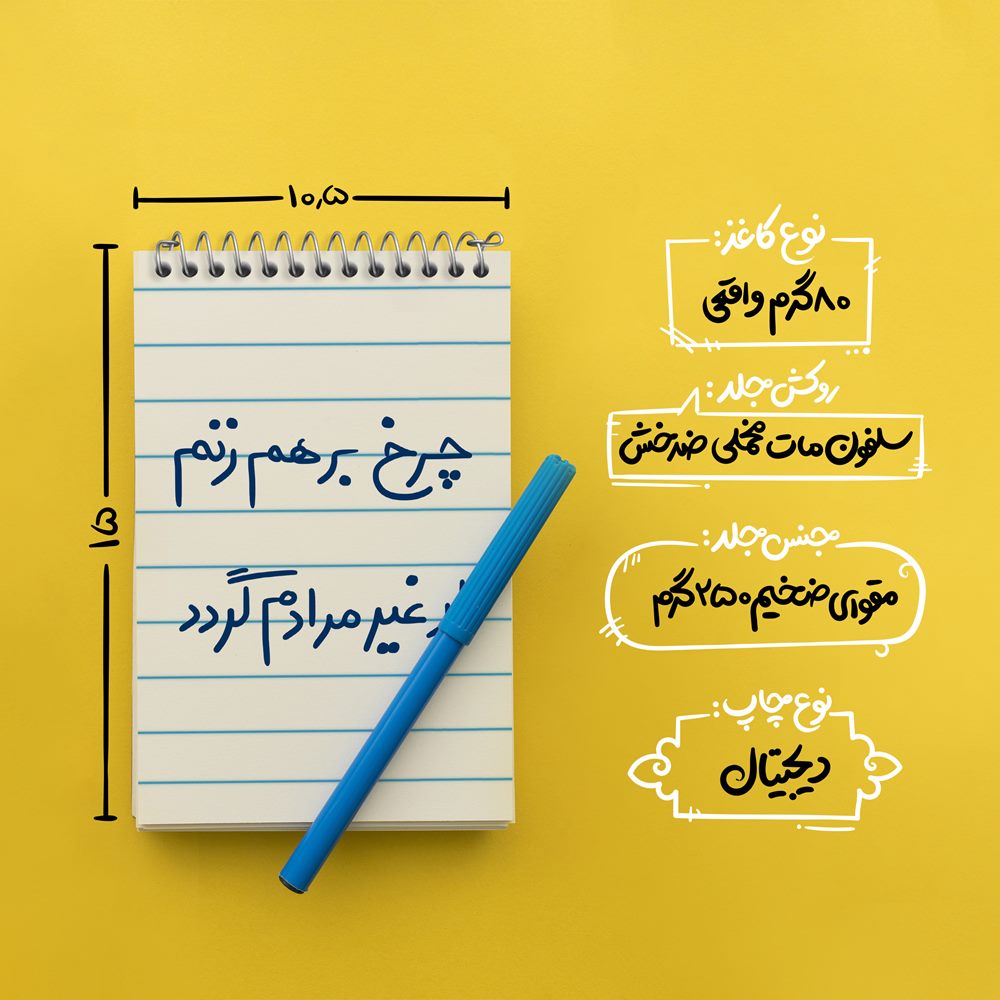 ۱۰٫۵
۱۵
چرخ برهم زنم
غیر مرادم گردد
نوع کاغذ:
۸۰گرم واقعی
روکش جلد:
سلفون مات مخملی ضدخش
جنس جلد:
مقوای ضخیم ۲۵۰گرم
نوع چاپ:
دیجیتال